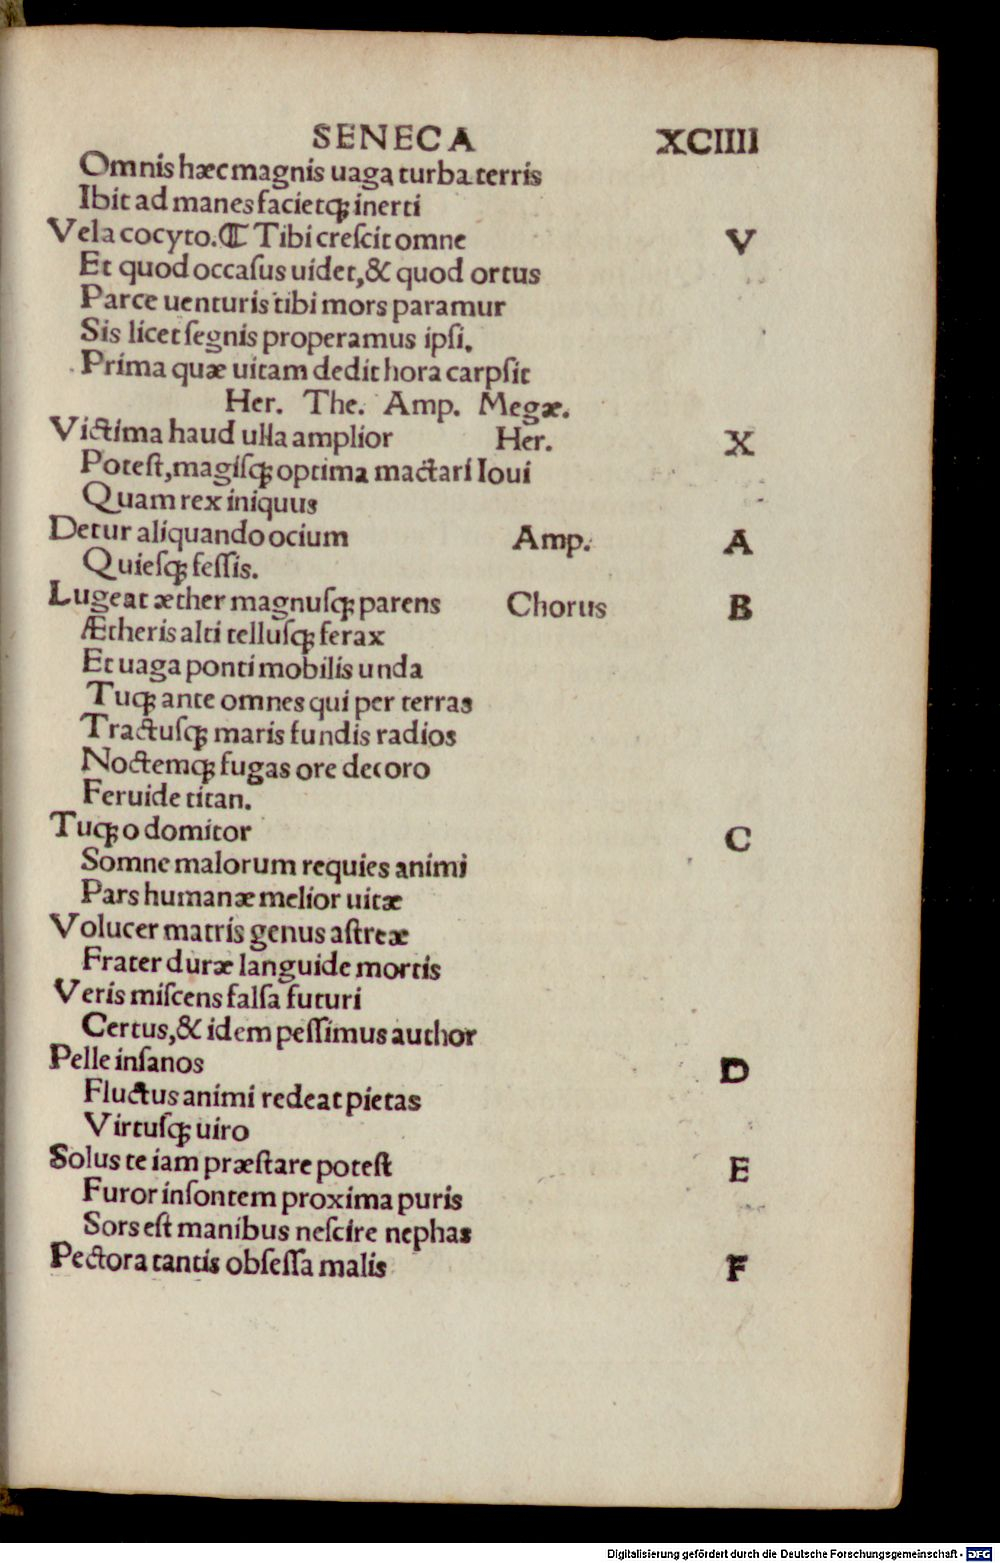 SENECA XCIIII
Omnis hæc magnis uaga turba terris
Ibit ad manes facietqꝫ inerti
Vela cocyto.⁋ Tibi crescit omne V
Et quod occasus uidet,& quod ortus
Parce uenturis tibi mors paramur
Sis licet segnis properamus ipsi.
Prima quæ uitam dedit hora carpsit
Her. The. Amp. Megæ.
Victima haud ulla amplior Her. X
Potest,magisqꝫ optima mactari Ioui
Quam rex iniquus
Detur aliquando ocium Amp. A
Quiesqꝫ fessis.
Lugeat æther magnusqꝫ parens Chorus B
Ætheris alti tellusqꝫ ferax
Et uaga ponti mobilis unda
Tuqꝫ ante omnes qui per terras
Tractusqꝫ maris fundis radios
Noctemqꝫ fugas ore decoro
Feruide titan.
Tuqꝫ o domitor C
Somne malorum requies animi
Pars humanæ melior uitæ
Volucer matris genus astreæ
Frater duræ languide mortis
Veris miscens falsa futuri
Certus,& idem pessimus author
Pelle insanos D
Fluctus animi redeat pietas
Virtusqꝫ uiro
Solus te iam præstare potest E
Furor insontem proxima puris
Sors est manibus nescire nephas
Pectora tantis obsessa malis F
Digitalisierung gefördert durch die Deutsche Forschungsgemeinschaft - DFG